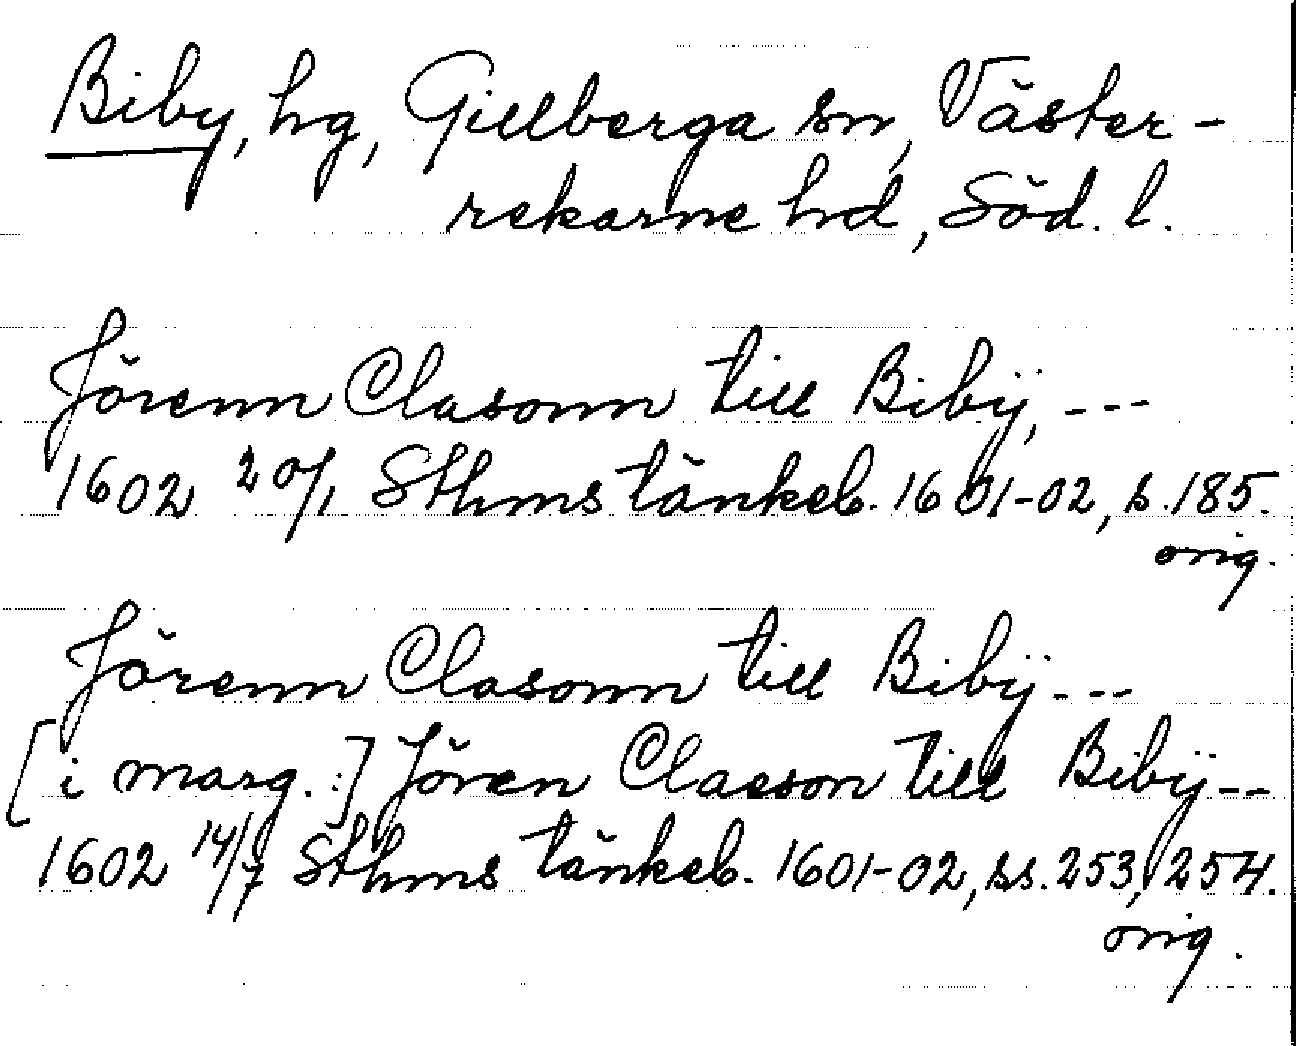 Biby, hg, Gillberga sn, Väster-
rekarne hd, Söd. l.
Jörenn Clasonn till Bibÿ, ---
1602 20/1 Sthms tänkeb. 1601-02, s. 185.
orig.
Jörenn Clasonn till Bibÿ ---
[i marg.:] Jören Classon till Bibÿ --
1602 14/7 Sthms tänkeb. 1601-02, ss. 253, 254.
orig.